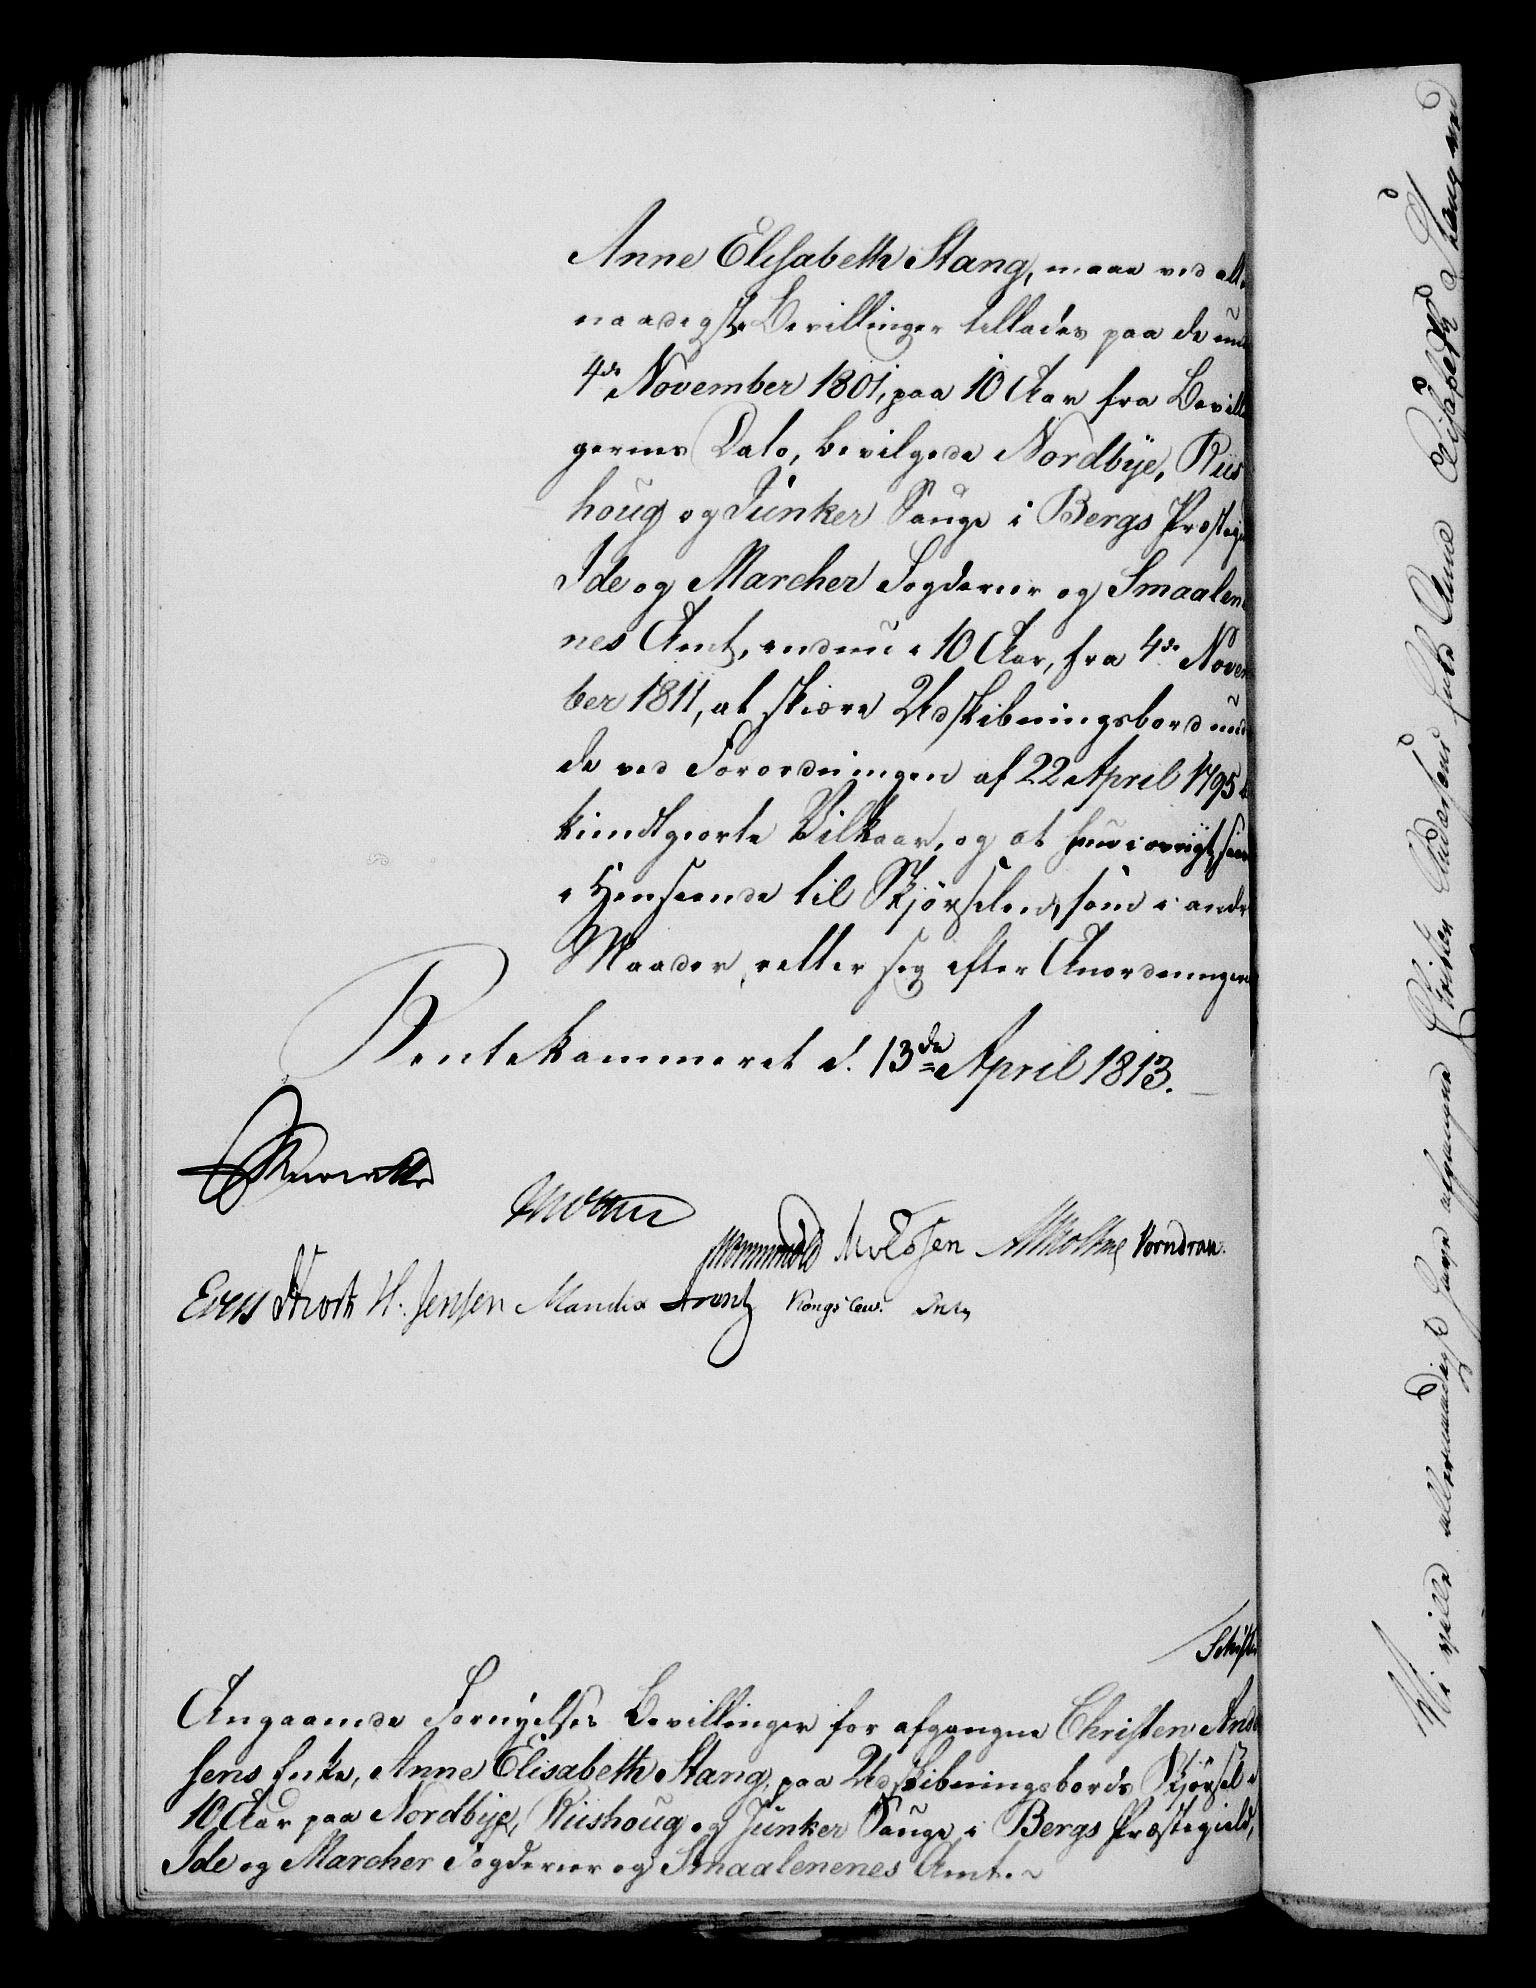 Anne Elisabeth Stang, maae ved aller
naadigste Bevillinger tillades paa de under
4de November 1801, paa 10 Aar fra Bevillin
gernes Dato, bevilgede Nordbÿe, Riis
houg og Junker Sauge i Bergs Præstegie
Ide og Marcher Fogderier og Smaalene
nes Amt, endnu i 10 Aar, fra 4de Novem
ber 1811, at skiære Udskibningsbord under
de ved Forordningen af 22 April 1795 be
kiendtgiorte Vilkaar, og at hun i øvrigt, saavel
i Henseende til Skjørselen, som i andre
Maader, retter sig efter Anordningerne
Rentekammeret d. 13de April 1813.
Wormskiold Monrad Knudsen Vorndran.
H. Jensen Mandix Arentz Kongslew.
Angaaende Fornÿelses Bevillinger for afgangne Christen Ander
sens Enke, Anne Elisabeth Stang, paa Udskibningsbords Skjørsel i
10 Aar paa Nordbÿe, Riishoug og Junker Sauge i Bergs Præstegield,
Ide og Marcher Fogderier og Smaalenenes Amt.
Vi ville allernaadigst have afgangne Christen Andersens Enke Anne Elisabeth Stang ved